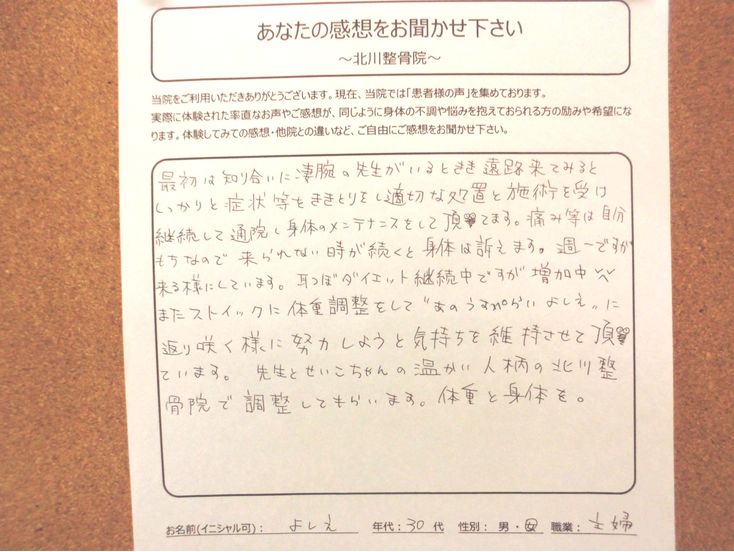 あなたの感想をお聞かせ下さい
～北川整骨院～
当院をご利用いただきありがとうございます。現在、当院では「患者様の声」を集めております。
実際に体験された率直なお声やご感想が、同じように身体の不調や悩みを抱えておられる方の励みや希望にな
ります。体験してみての感想・他院との違いなど、ご自由にご感想をお聞かせ下さい。
最初は知り合いに凄腕の先生がいるときき遠路来てみると
しっかりと症状等をききとりをし適切な処置と施術を受け
継続して通院し身体のメンテナンスをして頂いてます。痛み等は自分
もちなので来られない時が続くと身体は訴えます。週一ですが
来る様にしています。耳つぼダイエット継続中ですが増加中
またストイックに体重調整をして"あのうすっぺらいよしえ"に
返り咲く様に努力しようと気持ちを維持させて頂い
ています。先生とせいこちゃんの温かい人柄の北川整
骨院で調整してもらいます。体重と身体を。
お名前(イニシャル可)： よしえ 年代：30代 性別： 男・女 職業： 主婦